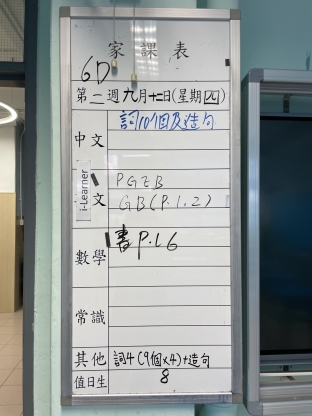 家課表
6D
第二週九月十二日(星期四)
詞10個及造句
中文
PGEB
i-Learner 文 GB(P.1.2)
數學 書P.16
常識
其他 詞4(9個x4)+造句
值日生 8